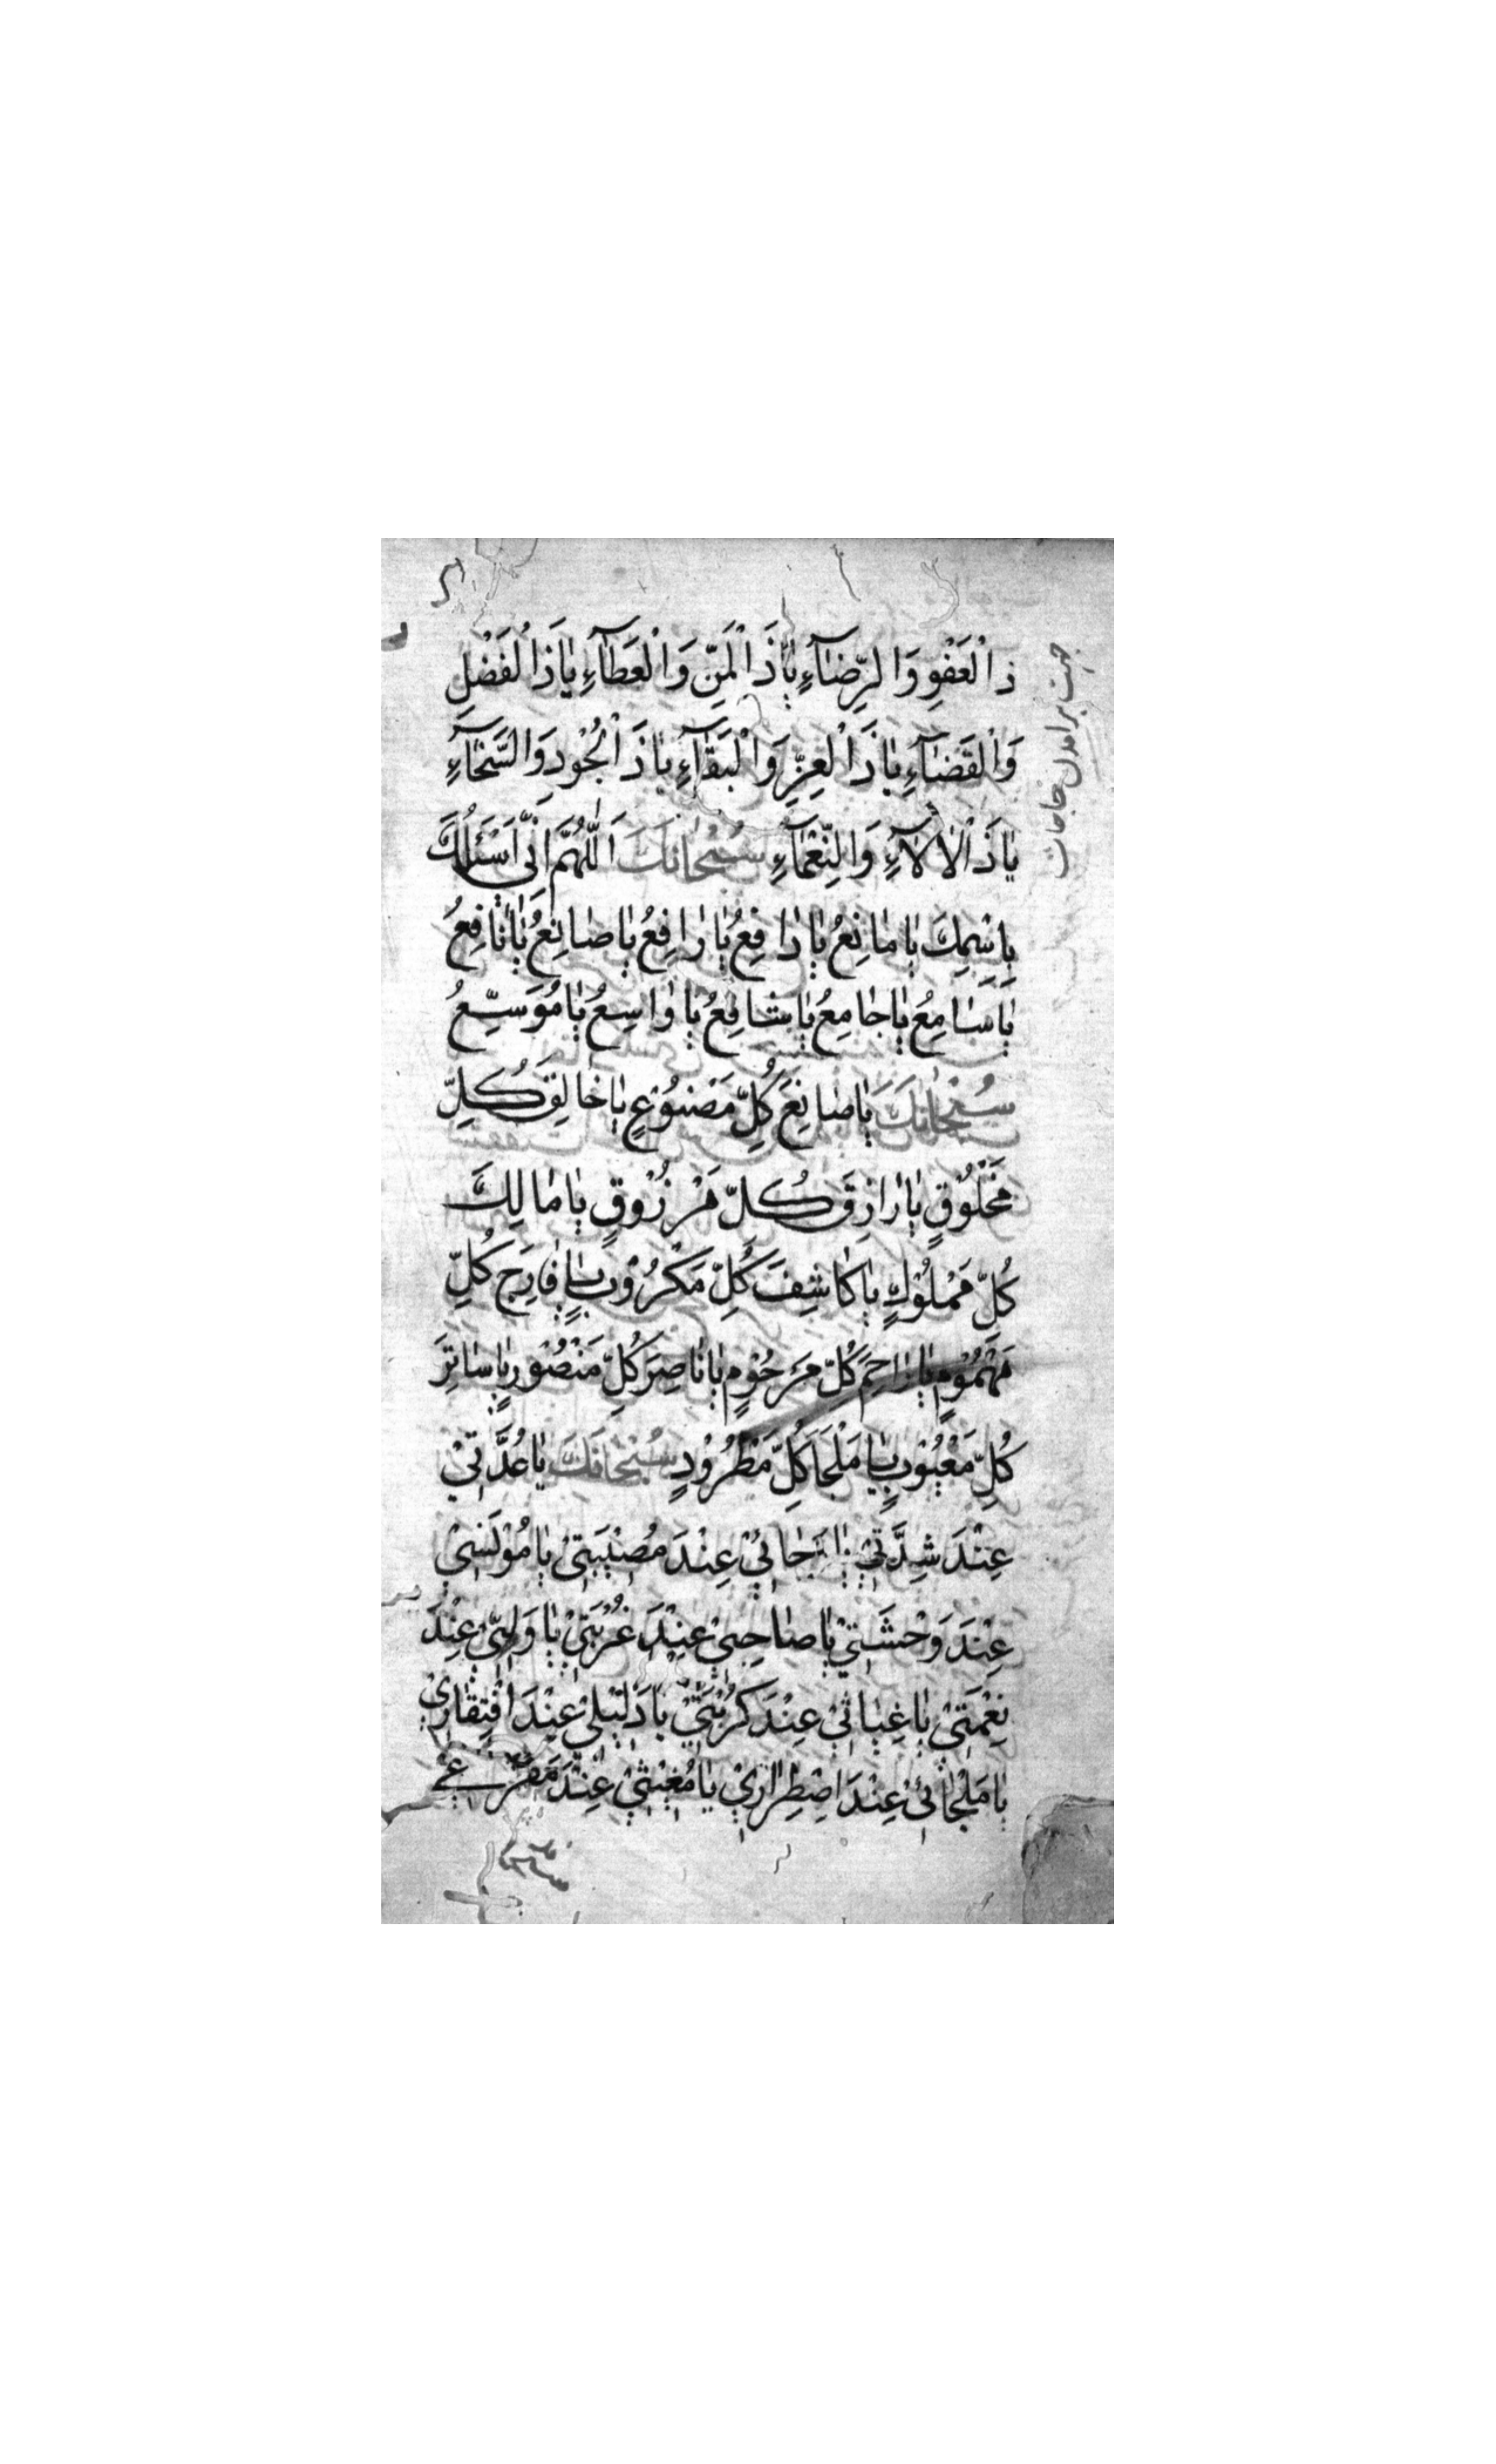 ذَا الْعَفْوِ وَالرِّضَآءِ يَا ذَا الْمَنِّ وَالْعَطَآءِ يَا ذَا الْفَضْلِ
وَالْقَضَآءِ يَا ذَا الْعِزِّ وَالْبَقَآءِ يَا ذَا الْجُوْدِ وَالسَّخَآءِ
يَا ذَا الْاٰلَآءِ وَالنِّعْمَآءِ سُبْحَانَكَ اَللّٰهُمَّ اِنِّي اَسْئَلُكَ
بِاسْمِكَ يَا مَانِعُ يَا دَافِعُ يَا رَافِعُ يَا صَانِعُ يَا نَافِعُ
يَا سَامِعُ يَا جَامِعُ يَا شَافِعُ يَا وَاسِعُ يَا مُوَسِّعُ
سُبْحَانَكَ يَا صَانِعَ كُلِّ مَصْنُوْعٍ يَا خَالِقَ كُلِّ
مَخْلُوْقٍ يَا رَازِقَ كُلِّ مَرْزُوْقٍ يَا مَالِكَ
كُلِّ مَمْلُوْكٍ يَا كَاشِفَ كُلِّ مَكْرُوْبٍ يَا فَارِجَ كُلِّ
مَهْمُوْمٍ يَا رَاحِمَ كُلِّ مَرْحُوْمٍ يَا نَاصِرَ كُلِّ مَنْصُوْرٍ يَا سَاتِرَ
كُلِّ مَعْيُوْبٍ يَا مَلْجَاَ كُلِّ مَطْرُوْدٍ سُبْحَانَكَ يَا عُدَّتِيْ
عِنْدَ شِدَّتِيْ يَا رَجَائِيْ عِنْدَ مُصِيْبَتِيْ يَا مُوْنِسِيْ
عِنْدَ وَحْشَتِيْ يَا صَاحِبِيْ عِنْدَ غُرْبَتِيْ يَا وَلِيِّيْ عِنْدَ
نِعْمَتِيْ يَا غِيَاثِيْ عِنْدَ كُرْبَتِيْ يَا دَلِيْلِيْ عِنْدَ افْتِقَارِيْ
يَا مَلْجَائِيْ عِنْدَ اضْطِرَارِيْ يَا مُغِيْثِيْ عِنْدَ مَفْزَعِيْ
جهت برامدن حاجات